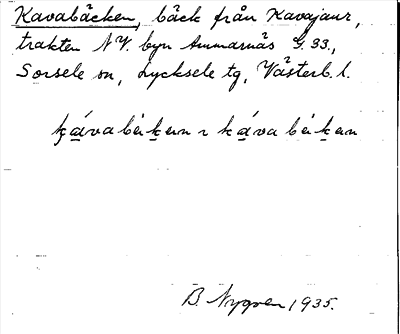 Kavabäcken, bäck från Kavajaur,
trakten NV. byn Ammarnäs G. 33.,
Sorsele sn, Lycksele tg, Västerb. l.
B. Nygren 1935.